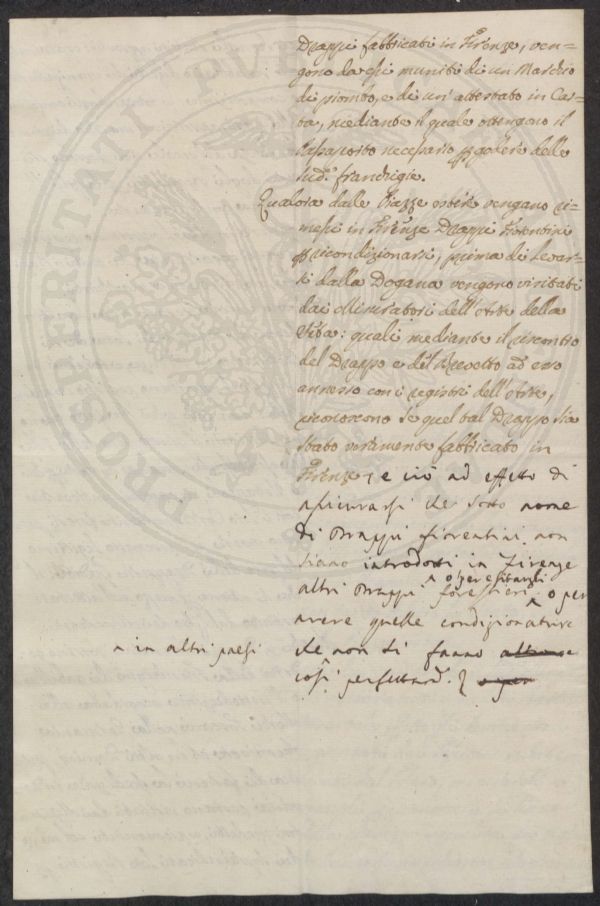 Drappi fabbricati in Firenze, ven-
gono da essi muniti di un Marchio
di piombo, e di un' attestato in Car-
ta, mediante il quale ottengono il
Passaporto necessario per godere delle
sud.e franchigie.
Qualora dalle Piazze estere vengano ri-
messi in Firenze Drappi Fiorentini
per ricondizionarsi, prima di levar-
si dalla Dogana vengono visitati
dai Misuratori dell'Arte della
Seta: quali mediante il riscontro
del Drappo e del Brevetto ad esso
annesso con i registri dell'Arte,
riconoscono se quel tal Drappo sia
stato veramente fabbricato in
Firenze, e ciò ad effetto di
assicurarsi che sotto nome
di Drappi fiorentini non
siano introdotti in Firenze
altri Drappi forestieri o per esitargli o per
avere quelle condizionature
che non si fanno
^ in altri paesi
così perfettam.e
PROSPERITATI PVBL